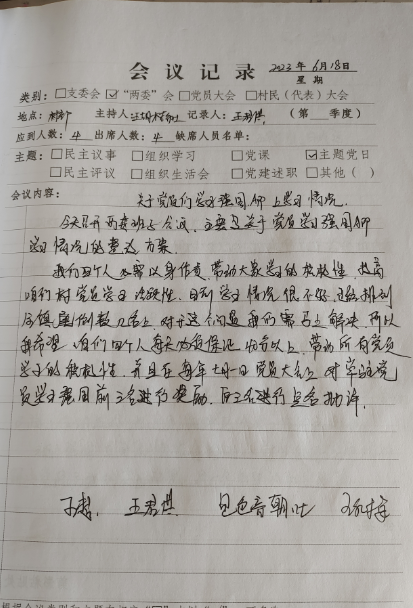 会议记录 2023年6月18日
星期
类别：□支委会☑“两委”会□党员大会□村民（代表）大会
地点： 主持人： 记录人：王君琪 （第 季度）
应到人数：4 出席人数：4 缺席人员名单：
主题：□民主议事 □组织学习 □党课 ☑主题党日
□民主评议 □组织生活会 □党建述职 □其他（ ）
会议内容： 关于党员们学习强国APP上学习情况.
今天召开两委班子会议，主要是关于党员学习强国APP
学习情况的整改方案.
我们四个人必需以身作责，带动大家学习的积极性，提高
咱们村党员学习活跃性，目前学习情况很不好，已经排列
全镇倒数几名上，对于这个问题我们需马上解决，所以
我希望咱们四个人每天必须保证 以上，带动所有党员
学习的积极性，并且在每年七月一日党员大会上对学习党
员学习强国前三名进行奖励，后三名进行点名批评，
王君琪 包色音朝吐